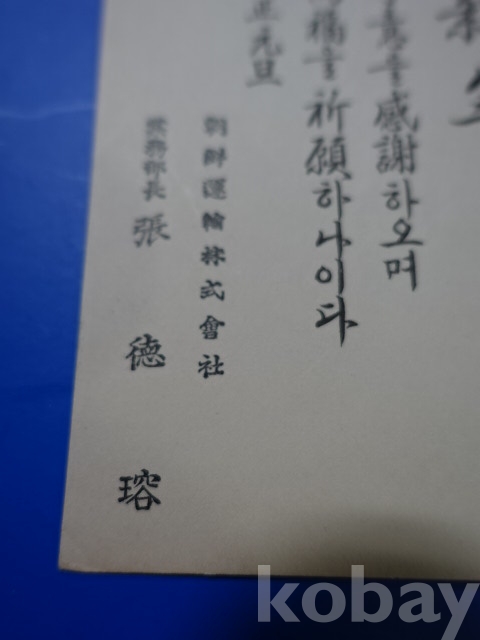 意을 感謝하오며
福을 祈願하나이다
正元旦
朝鮮運輸株式會社
業務部長 張德瑢
kobay